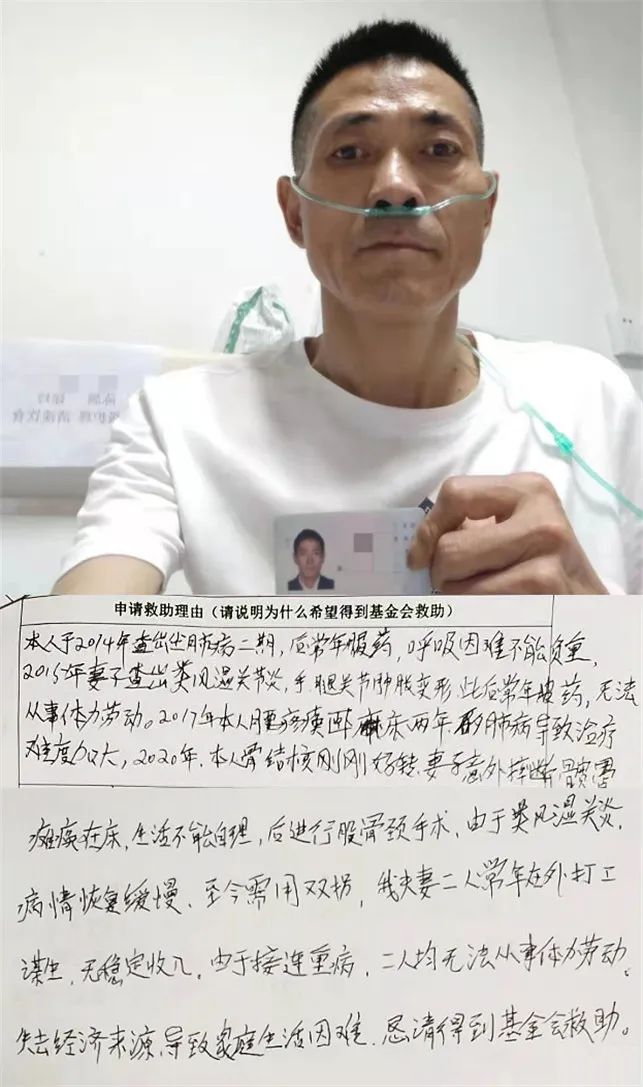 清淡饮食
申请救助理由（请说明为什么希望得到基金会救助）
本人于2014年查出尘肺病二期，后常年服药，呼吸困难不能负重，
2015年妻子查出类风湿关节炎，手.腿关节肿胀变形，此后常年服药，无法
从事体力劳动。2017年本人腰疼瘫卧床两年.矽肺病导致治疗
难度加大，2020年.本人骨结核刚刚好转.妻子意外摔断髋骨
瘫痪在床，生活不能自理，后进行股骨颈手术，由于类风湿关炎，
病情恢复缓慢、至今需用双拐，我夫妻二人常年在外打工
谋生，无稳定收入，由于接连重病，二人均无法从事体力劳动。
失去经济来源.导致家庭生活困难.恳请得到基金会救助。